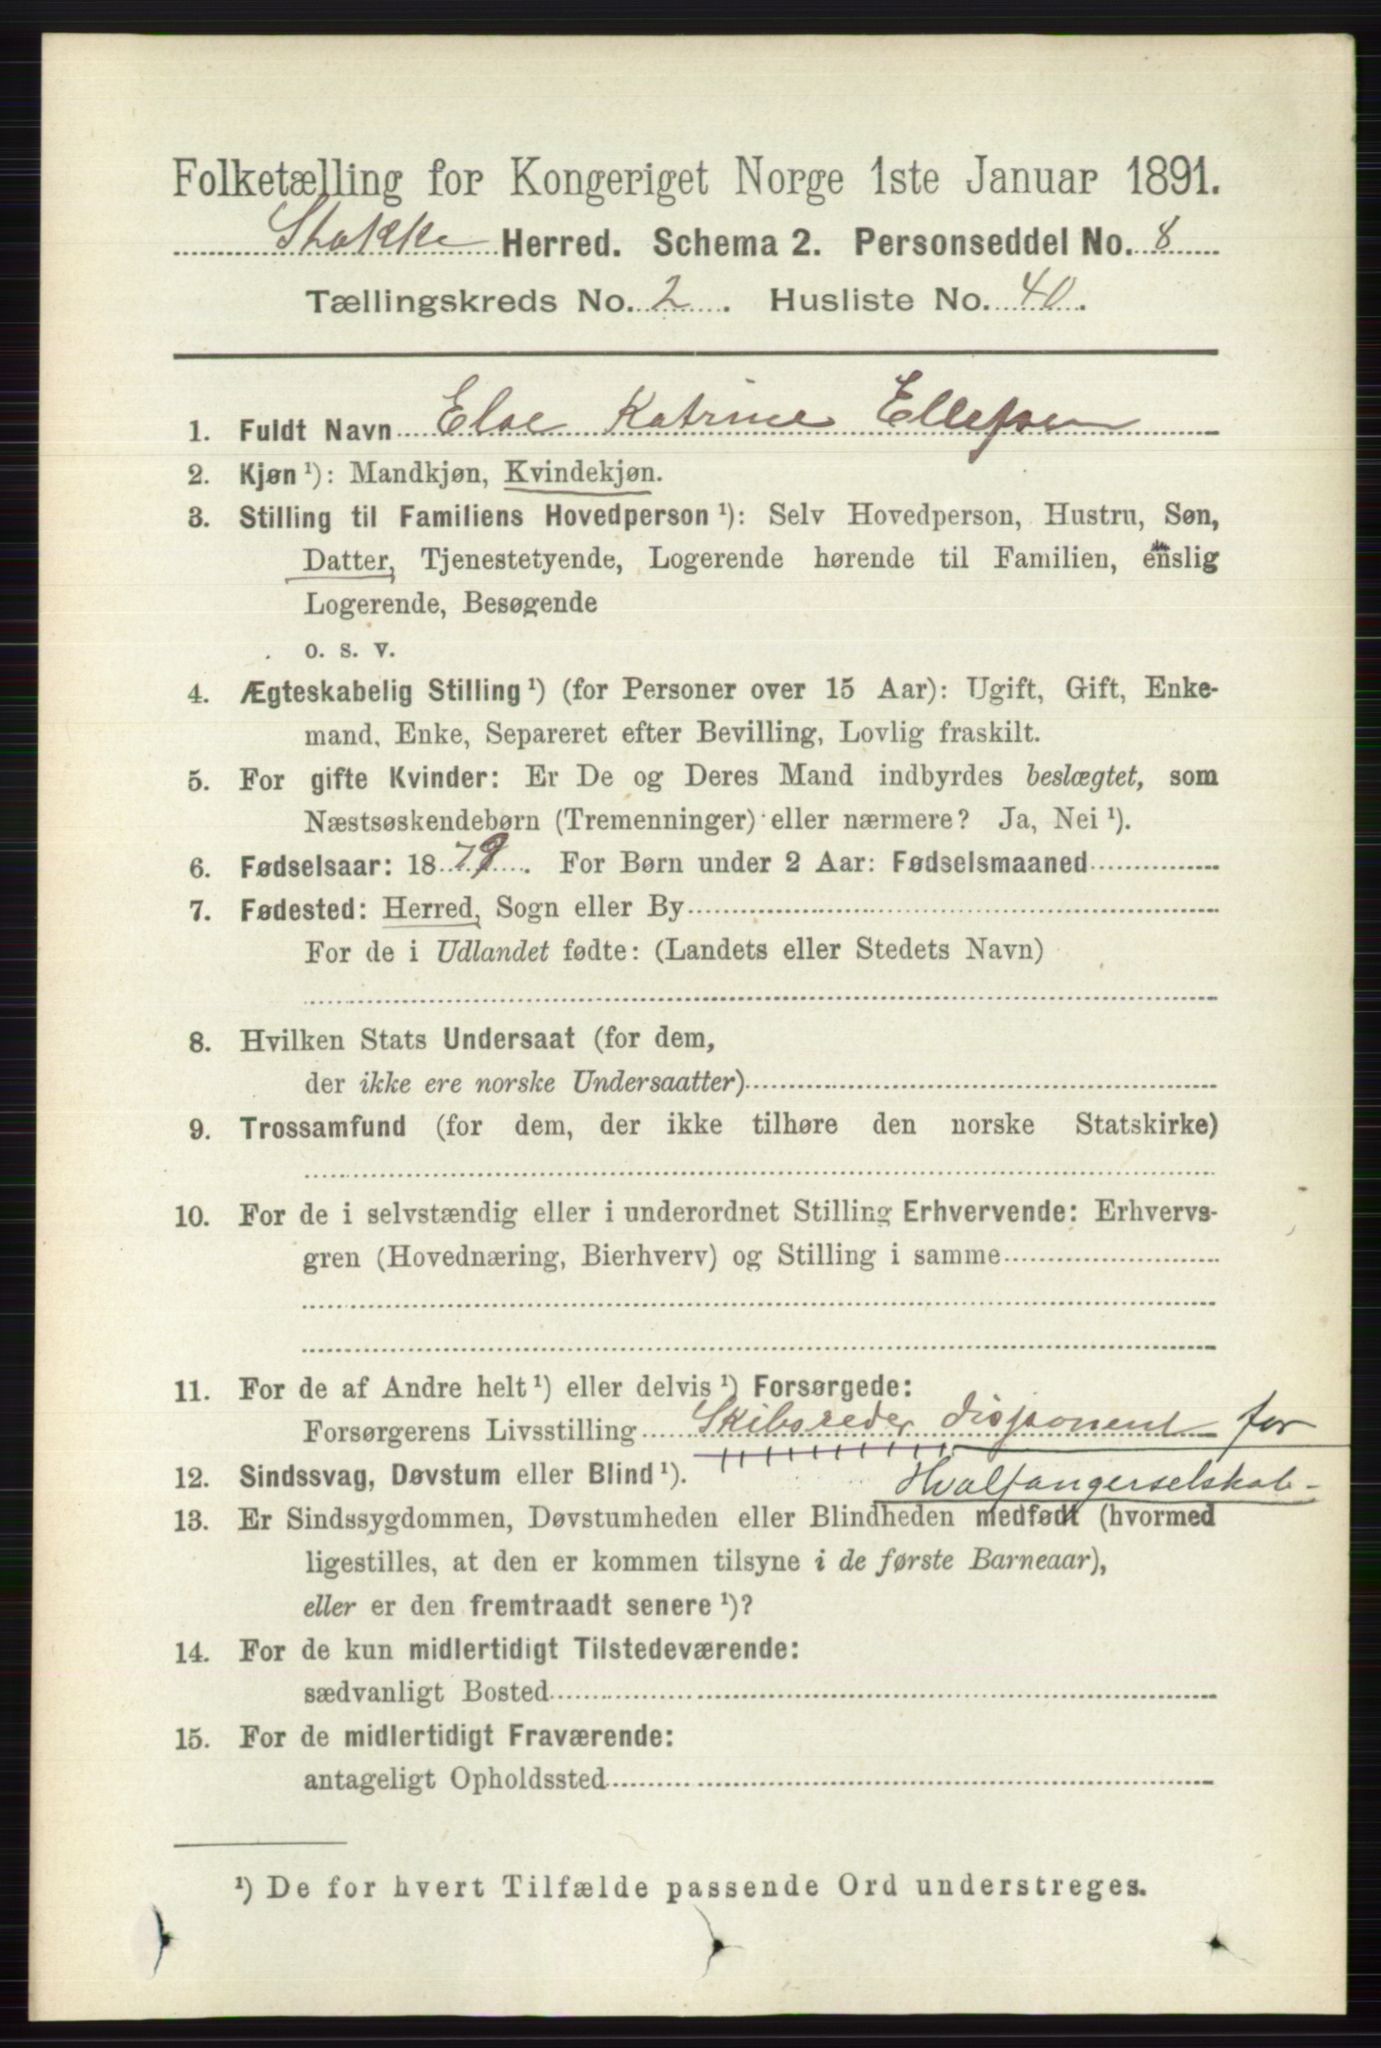 Folketælling for Kongeriget Norge 1ste Januar 1891.
Stokke Herred. Schema 2. Personseddel No. 8
Tællingskreds No. 2. Husliste No. 40.
1. Fuldt Navn Else Katrine Ellefsen
2. Kjøn ¹): Mandkjøn, Kvindekjøn.
3. Stilling til Familiens Hovedperson ¹): Selv Hovedperson, Hustru, Søn,
Datter, Tjenestetyende, Logerende hørende til Familien, enslig
Logerende, Besøgende
o. s. v.
4. Ægteskabelig Stilling ¹) (for Personer over 15 Aar): Ugift, Gift, Enke-
mand, Enke, Separeret efter Bevilling, Lovlig fraskilt.
5. For gifte Kvinder: Er De og Deres Mand indbyrdes beslægtet, som
Næstsøskendebørn (Tremenninger) eller nærmere? Ja, Nei ¹).
6. Fødselsaar: 1879. For Børn under 2 Aar: Fødselsmaaned
7. Fødested: Herred, Sogn eller By
For de i Udlandet fødte: (Landets eller Stedets Navn)
8. Hvilken Stats Undersaat (for dem,
der ikke ere norske Undersaatter)
9. Trossamfund (for dem, der ikke tilhøre den norske Statskirke)
10. For de i selvstændig eller i underordnet Stilling Erhvervende: Erhvervs-
gren (Hovednæring, Bierhverv) og Stilling i samme
11. For de af Andre helt ¹) eller delvis ¹) Forsørgede:
Forsørgerens Livsstilling Skibsreder disponent for
12. Sindssvag, Døvstum eller Blind ¹). Hvalfangerselskab-
13. Er Sindssygdommen, Døvstumheden eller Blindheden medfødt (hvormed
ligestilles, at den er kommen tilsyne i de første Barneaar),
eller er den fremtraadt senere ¹)?
14. For de kun midlertidigt Tilstedeværende:
sædvanligt Bosted
15. For de midlertidigt Fraværende:
antageligt Opholdssted
¹) De for hvert Tilfælde passende Ord understreges.